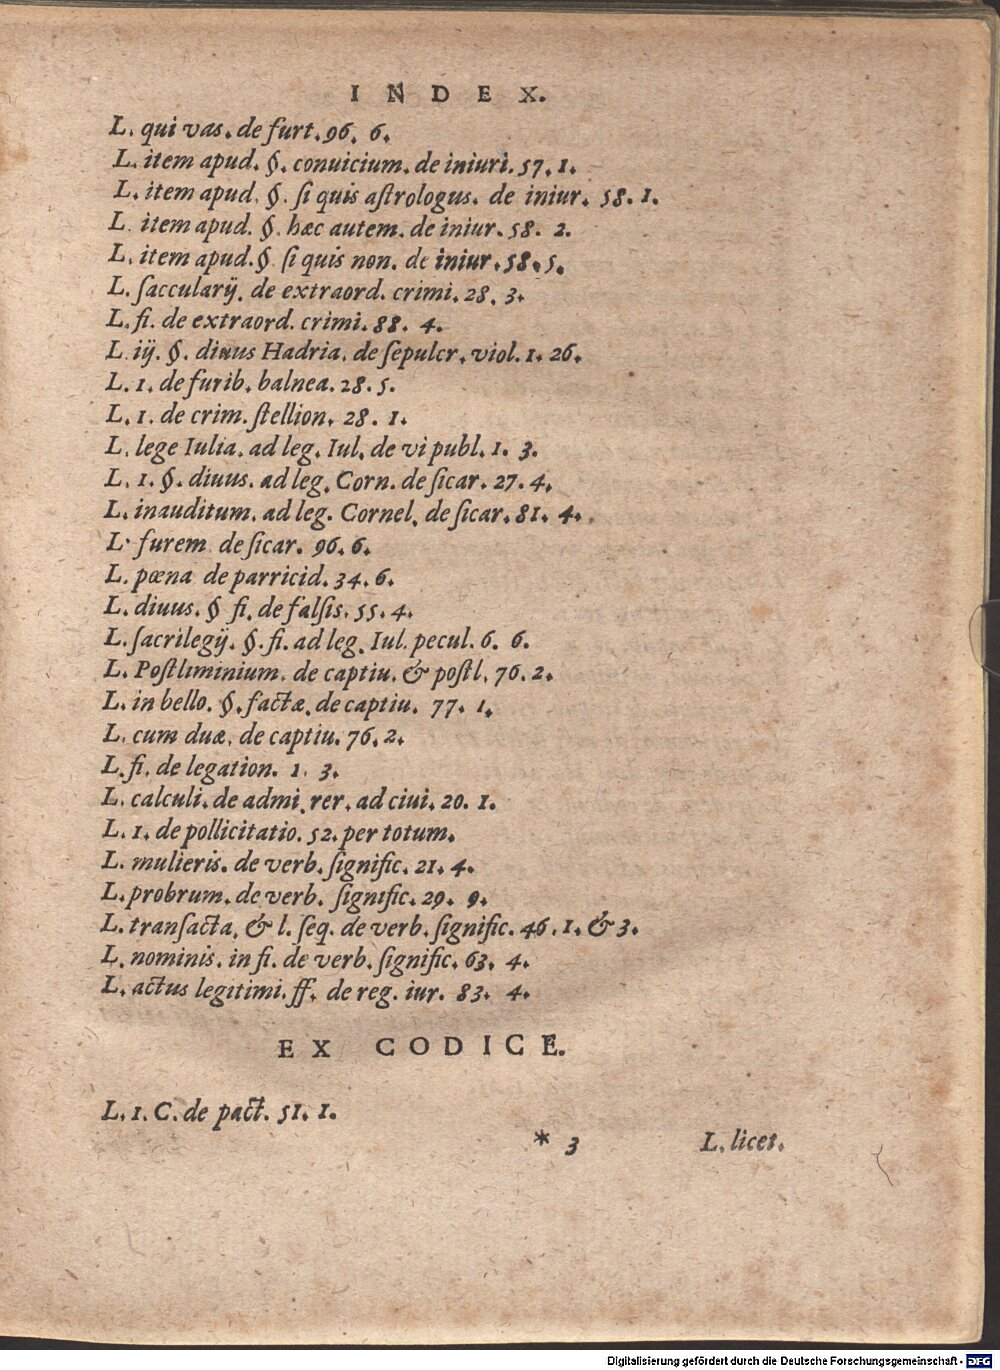 INDEX.
L. qui vas. de furt. 96. 6.
L. item apud. §. conuicium. de iniuri. 57. 1.
L. item apud. §. ſi quis aſtrologus. de iniur. 58. 1.
L. item apud. §. hæc autem. de iniur. 58. 2.
L. item apud. §. ſi quis non. de iniur. 58. 5.
L. ſaccularij. de extraord. crimi. 28. 3.
L. fi. de extraord. crimi. 88. 4.
L. iij. §. diuus Hadria. de ſepulcr. viol. 1. 26.
L. 1. de furib. balnea. 28. 5.
L. 1. de crim. ſtellion. 28. 1.
L. lege Iulia. ad leg. Iul. de vi publ. 1. 3.
L. 1. §. diuus. ad leg. Corn. de ſicar. 27. 4.
L. inauditum. ad leg. Cornel. de ſicar. 81. 4.
L. furem de ſicar. 96. 6.
L. pœna de parricid. 34. 6.
L. diuus. § fi. de falſis. 55. 4.
L. ſacrilegij. §. fi. ad leg. Iul. pecul. 6. 6.
L. Poſtliminium. de captiu. & poſtl. 76. 2.
L. in bello. §. factæ. de captiu. 77. 1.
L. cum duæ. de captiu. 76. 2.
L. fi. de legation. 1. 3.
L. calculi. de admi. rer. ad ciui. 20. 1.
L. 1. de pollicitatio. 52. per totum.
L. mulieris. de verb. ſignific. 21. 4.
L. probrum. de verb. ſignific. 29. 9.
L. tranſacta. & l. ſeq. de verb. ſignific. 46. 1. & 3.
L. nominis. in fi. de verb. ſignific. 63. 4.
L. actus legitimi. ff. de reg. iur. 83. 4.
EX CODICE.
L. 1. C. de pact. 51. 1.
* 3 L. licet.
Digitalisierung gefördert durch die Deutsche Forschungsgemeinschaft - DFG